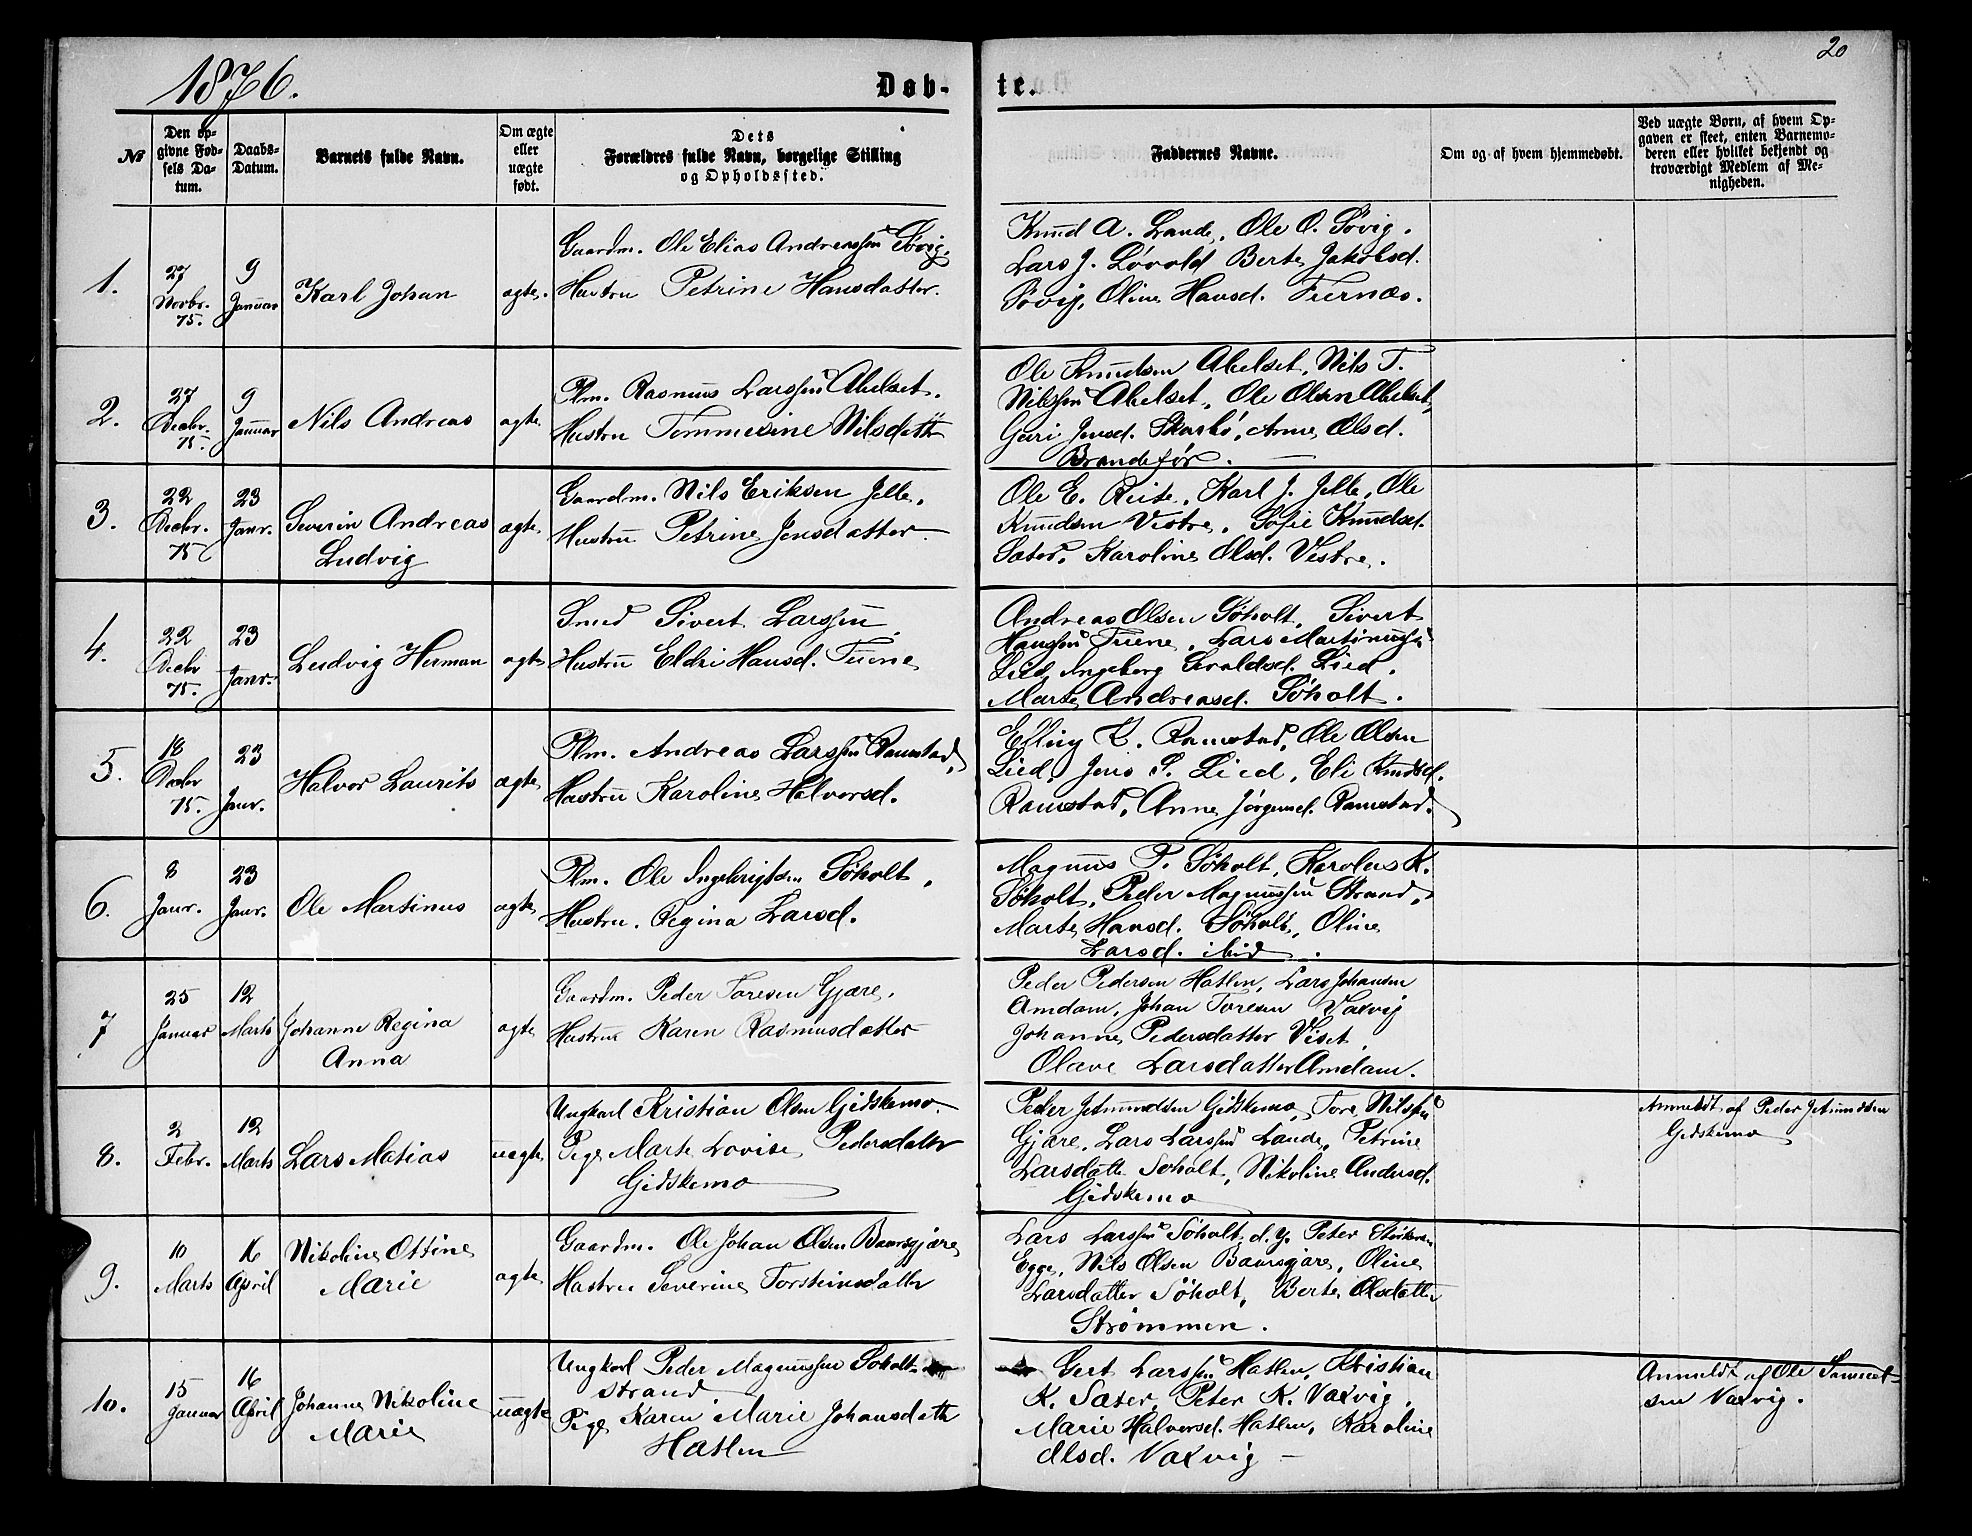 1876.
Døb-
te.
20
No
Den op-
givne Fød-
sels Da-
tum.
Daabs-
Datum.
Barnets fulde Navn.
Om ægte
eller
uægte
født.
Dets
Forældres fulde Navn, borgelige Stilling
og Opholdssted.
Faddernes Navne.
Om og af hvem hjemmedøbt.
Ved uægte Børn, af hvem Op-
gaven er skeet, enten Barnemo-
deren eller hvilket bekjendt og
troværdigt Medlem af Me-
nigheden.
1.
27
Novbr.
75.
9
Januar
Karl Johan
ægte.
Gaardm. Ole Elias Andreassen Søvig,
Hustru Petrine Hansdatter.
Knud A. Lande, Ole O. Søvig.
Lars J. Løvold Berte Jakobsd.
Søvig, Oline Hansd.
2.
27
Decbr.
75.
9
Januar
Nils Andreas
ægte
Plm. Rasmus Larssen Abelset.
Hustru Nilsdattr
Ole Knudsen Abelset, Nils T.
Nilssen Abelset, Ole Olsen Abelset,
Guri Jensd. Skarbø, Anne Olsd.
3.
22
Decbr.
75
23
Janr.
Severin Andreas
Ludvig
ægte
Gaardm. Nils Eriksen Jelle,
Hustru Petrine Jensdatter
Ole E. Reite, Karl J. Jelle, Ole
Knudsen Vestre, Sofie Knudsd.
Sæter, Karoline Olsd. Vestre.
4.
22
Decbr
75.
23
Janr.
Ludvig Herman
ægte
Smed Sivert Larssen
Hustru Eldri Hansd.
Andreas Olsen Søholt, Sivert
Hanssen Lars Martinussen
Lied, Ingeborg Lied.
Marte Andreasd. Søholt.
5.
18
Decbr
75.
23
Janr.
Halvor Laurits
ægte
Plm. Andreas Larssen Ramstad,
Hustru Karoline Halvorsd.
Elling K. Ramstad, Ole Olsen
Lied, Jens P. Lied, Eli Knudsd.
Ramstad, Anne Jørgensd. Ramstad.
6.
8
Janr.
23
Janr.
Ole Martinus
ægte
Plm. Ole Ingebrigtsen Søholt,
Hustru. Regina Larsd.
Magnus P. Søholt, Karolus K.
Søholt, Peder Magnussen Strand,
Marte Hansd. Søholt, Oline
Larsd. ibid.
7
25
Januar
12
Marts
Johanne Regina
Anna
ægte
Gaardm. Peder Toresen Gjære.
Hustru Karen Rasmusdatter
Peder Pedersen Hatlen, Lars Johansen
Amdam, Johan Toresen Vaxvig
Johanne Pedersdatter Viset
Olave Larsdatter Amdam.
8.
2
Febr.
12
Marts
Lars Matias
uægte
Ungkarl Kristian Olsen Gidskemo.
Pige Marte Lovise Pedersdatter
Gidskemo
Peder Jetmundsen Gidskemo, Tore Nilssen
Gjære, Lars Larssen Lande, Petrine
Larsdatter Søholt, Nikoline Andersd.
Gidskemo
Anmeldt af Peder Jetmundsen
Gidskemo
9.
10
Marts
16
April
Nikoline Ottine
Marie
ægte
Gaardm. Ole Johan Olsen Baarsgjære
Hustru Severine Torsteinsdatter
Lars Larssen Søholt, d.y. Peter
Egge, Nils Olsen Baarsgjære, Oline
Larsdatter Søholt, Berte Olsdatter
Strømmen.
10.
15
Januar
16
April
Johanne Nikoline
Marie
uægte
Ungkarl Peder Magnussen Søholt-
strand
Pige Karen Marie Johansdatter
Hatlen
Gert Larssen Hatlen, Kristian
K. Sæter, Peter K. Vaxvig,
Marie Halvorsd. Hatlen, Karoline
Olsd. Vaxvig —
Anmeldt af Ole
sen Vaxvig.